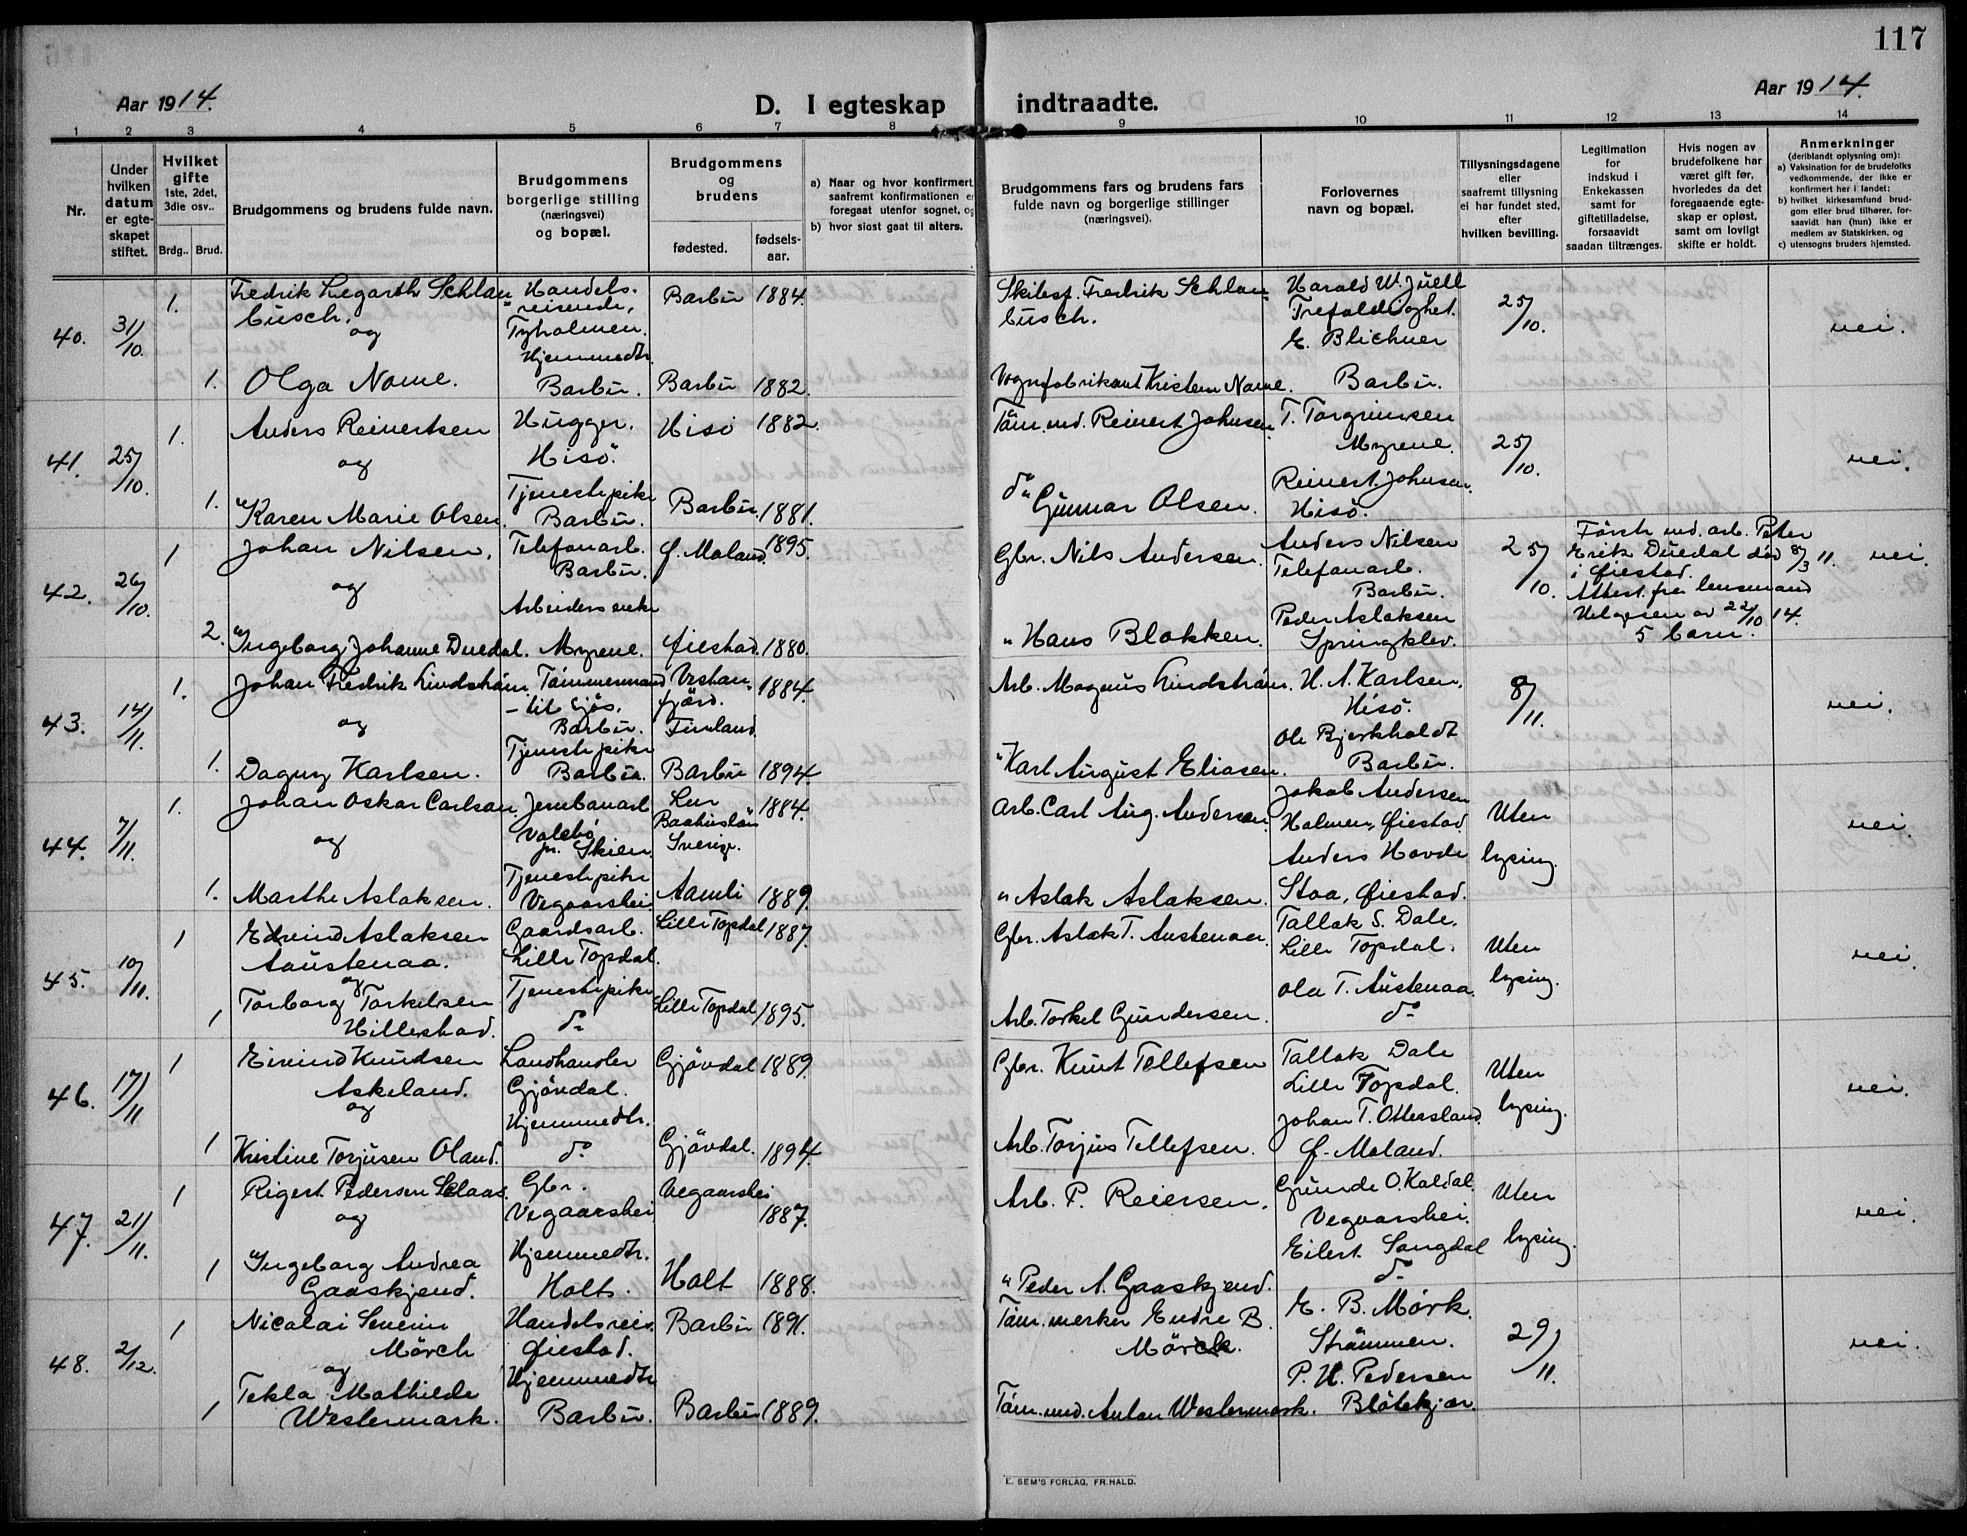 117
Aar 1914.
D. I egteskap indtraadte.
Aar 1914.
1 2 3 4 5 6 7 8 9 10 11 12 13 14
Nr.
Under hvilken datum er egteskapet stiftet.
Hvilket gifte 1ste, 2det, 3die osv..
Brdg.. Brud.
Brudgommens og brudens fulde navn.
Brudgommens borgerlige stilling (næringsvei) og bopæl.
Brudgommens og brudens
fødested.
fødsels-aar.
a) Naar og hvor konfirmert
saafremt konfirmationen
foregaat utenfor sognet,
b) hvor sidst gaat til alters.
Brudgommens fars og brudens fars
fulde navn og borgerlige stillinger
(næringsvei).
Forlovernes
navn og bopæl.
Tillysningsdagene
eller
saafremt tillysning
ei har fundet sted,
efter
hvilken bevilling.
Legitimation
for
indskud i
Enkekassen
samt for
giftetilladelse,
forsaavidt
saadan tiltrænges.
Hvis nogen av
brudefolkene har
været gift før,
hvorledes da det
foregaaende egte-
skap er opløst,
samt om lovligt
skifte er holdt.
Anmerkninger
(deriblandt oplysning om):
a) Vaksination for de brudefolks
vedkommende, der ikke er
konfirmert her i landet;
b) hvilket kirkesamfund brud-
gom eller brud tilhører, for-
saavidt han (hun) ikke er
medlem av Statskirken, og
c) utensogns bruders hjemsted.
40. 31/10. 1. Fredrik Legarth Schlanbusch. Handelsreisende, Tyholmen. Barbu 1884. Skibsf. Fredrik Schlanbusch. Harald W. Juell Trefoldighet. 25/10. nei.
og
1. Olga Name. Hjemmedtr. Barbu. Barbu 1882. Vognfabrikant Kristen Name. E. Blichner Barbu.
41. 25/10. 1. Anders Reinertsen Hugger. Hisö. Hisö 1882. Töm.md. Reinert Johnsen. T. Torgrimsen Myrene. 25/10. nei.
og
1. Karen Marie Olsen. Tjenestepike Barbu. Barbu. 1881. do Gunnar Olsen. Reinert Johnsen. Hisö.
42. 26/10. 1 Johan Nilsen. Telefonarb. Barbu. Ö. Moland. 1895. Gbr. Nils Andersen. Anders Nilsen Telefonarb. Barbu. 25/10. Först md. arb. Peter Erik Duedal död 8/3 11. i Öiestad. Attest fra lensmand av 22/10 14. 5 barn. nei.
og
2. Ingeborg Johanne Duedal. Arbeiders enke Myrene. Öiestad. 1880. " Hans Blakken. Peder Aslaksen Springklev.
43. 14/11. 1. Johan Fredrik Lindström. Tömmermand - til sjös. Barbu. Vestanfjärd. Finland. 1884. Arb. Magnus Lindström. H. A. Karlsen. Hisö. 8/11. nei.
og
1. Dagny Karlsen. Tjenestepike Barbu. Barbu 1894. " Karl August Eliasen. Ole Bjerkholdt Barbu.
44. 7/11. 1. Johan Oskar Carlsson Jernbanarb. Valebö pr. Skien. Lur Baahuslän Sverige. 1884. Arb. Carl Aug. Andersen. Jakob Andersen Holmen, Öiestad Uten lysing. nei.
og
1. Marthe Aslaksen. Tjenestepike Vegaarshei Aamli 1889. " Aslak Aslaksen. Anders Hovde Stoa, Öiestad.
45. 10/11. 1 Edvind Aslaksen Aaustenaa. Gaardsarb. Lille Topdal. Lille Topdal 1887. Gbr. Aslak T. Austenaa. Tallak S. Dale. Lille Topdal. Uten lysing. nei.
og
1 Torborg Torkelsen Hillestad. Tjenestepike do Lille Topdal 1895. Arb. Torkel Gundersen. Ola T. Austenaa. do
46. 17/11 1 Eivind Knudsen Askeland. Landhandler Gjövdal. Gjövdal 1889. Gbr. Knut Tellefsen Tallak Dale Lille Topdal. Uten lysing. nei.
og
1 Kristine Torjusen Oland. Hjemmedtr. do Gjövdal. 1894. Arb. Torjus Tellefsen. Johan T. Ottersland. Ö. Moland.
47. 21/11. 1 Rigert Pedersen Selaas. Gbr. Vegaarshei Vegaarshei 1887. Arb. P. Reiersen. Gunde O. Kaldal. Vegaarshei. Uten lysing. nei.
og
1 Ingeborg Andrea Gaaskjend. Hjemmedtr. Holt. Holt 1888. " Peder A. Gaaskjend. Eilert Songdal do
48. 2/12. 1 Nicolai Severin Mörch Handelsreis. Öiestad. Barbu 1891. Töm.merker Endre B. Mörck. E. B. Mörk. Strömmen. 29/11. nei.
og
1 Tekla Mathilde Westermark. Hjemmedtr Barbu. Barbu 1889. Töm.md. Anton Westermark. P. H. Pedersen Blötekjær.
E. SEM'S FORLAG, FR.HALD.